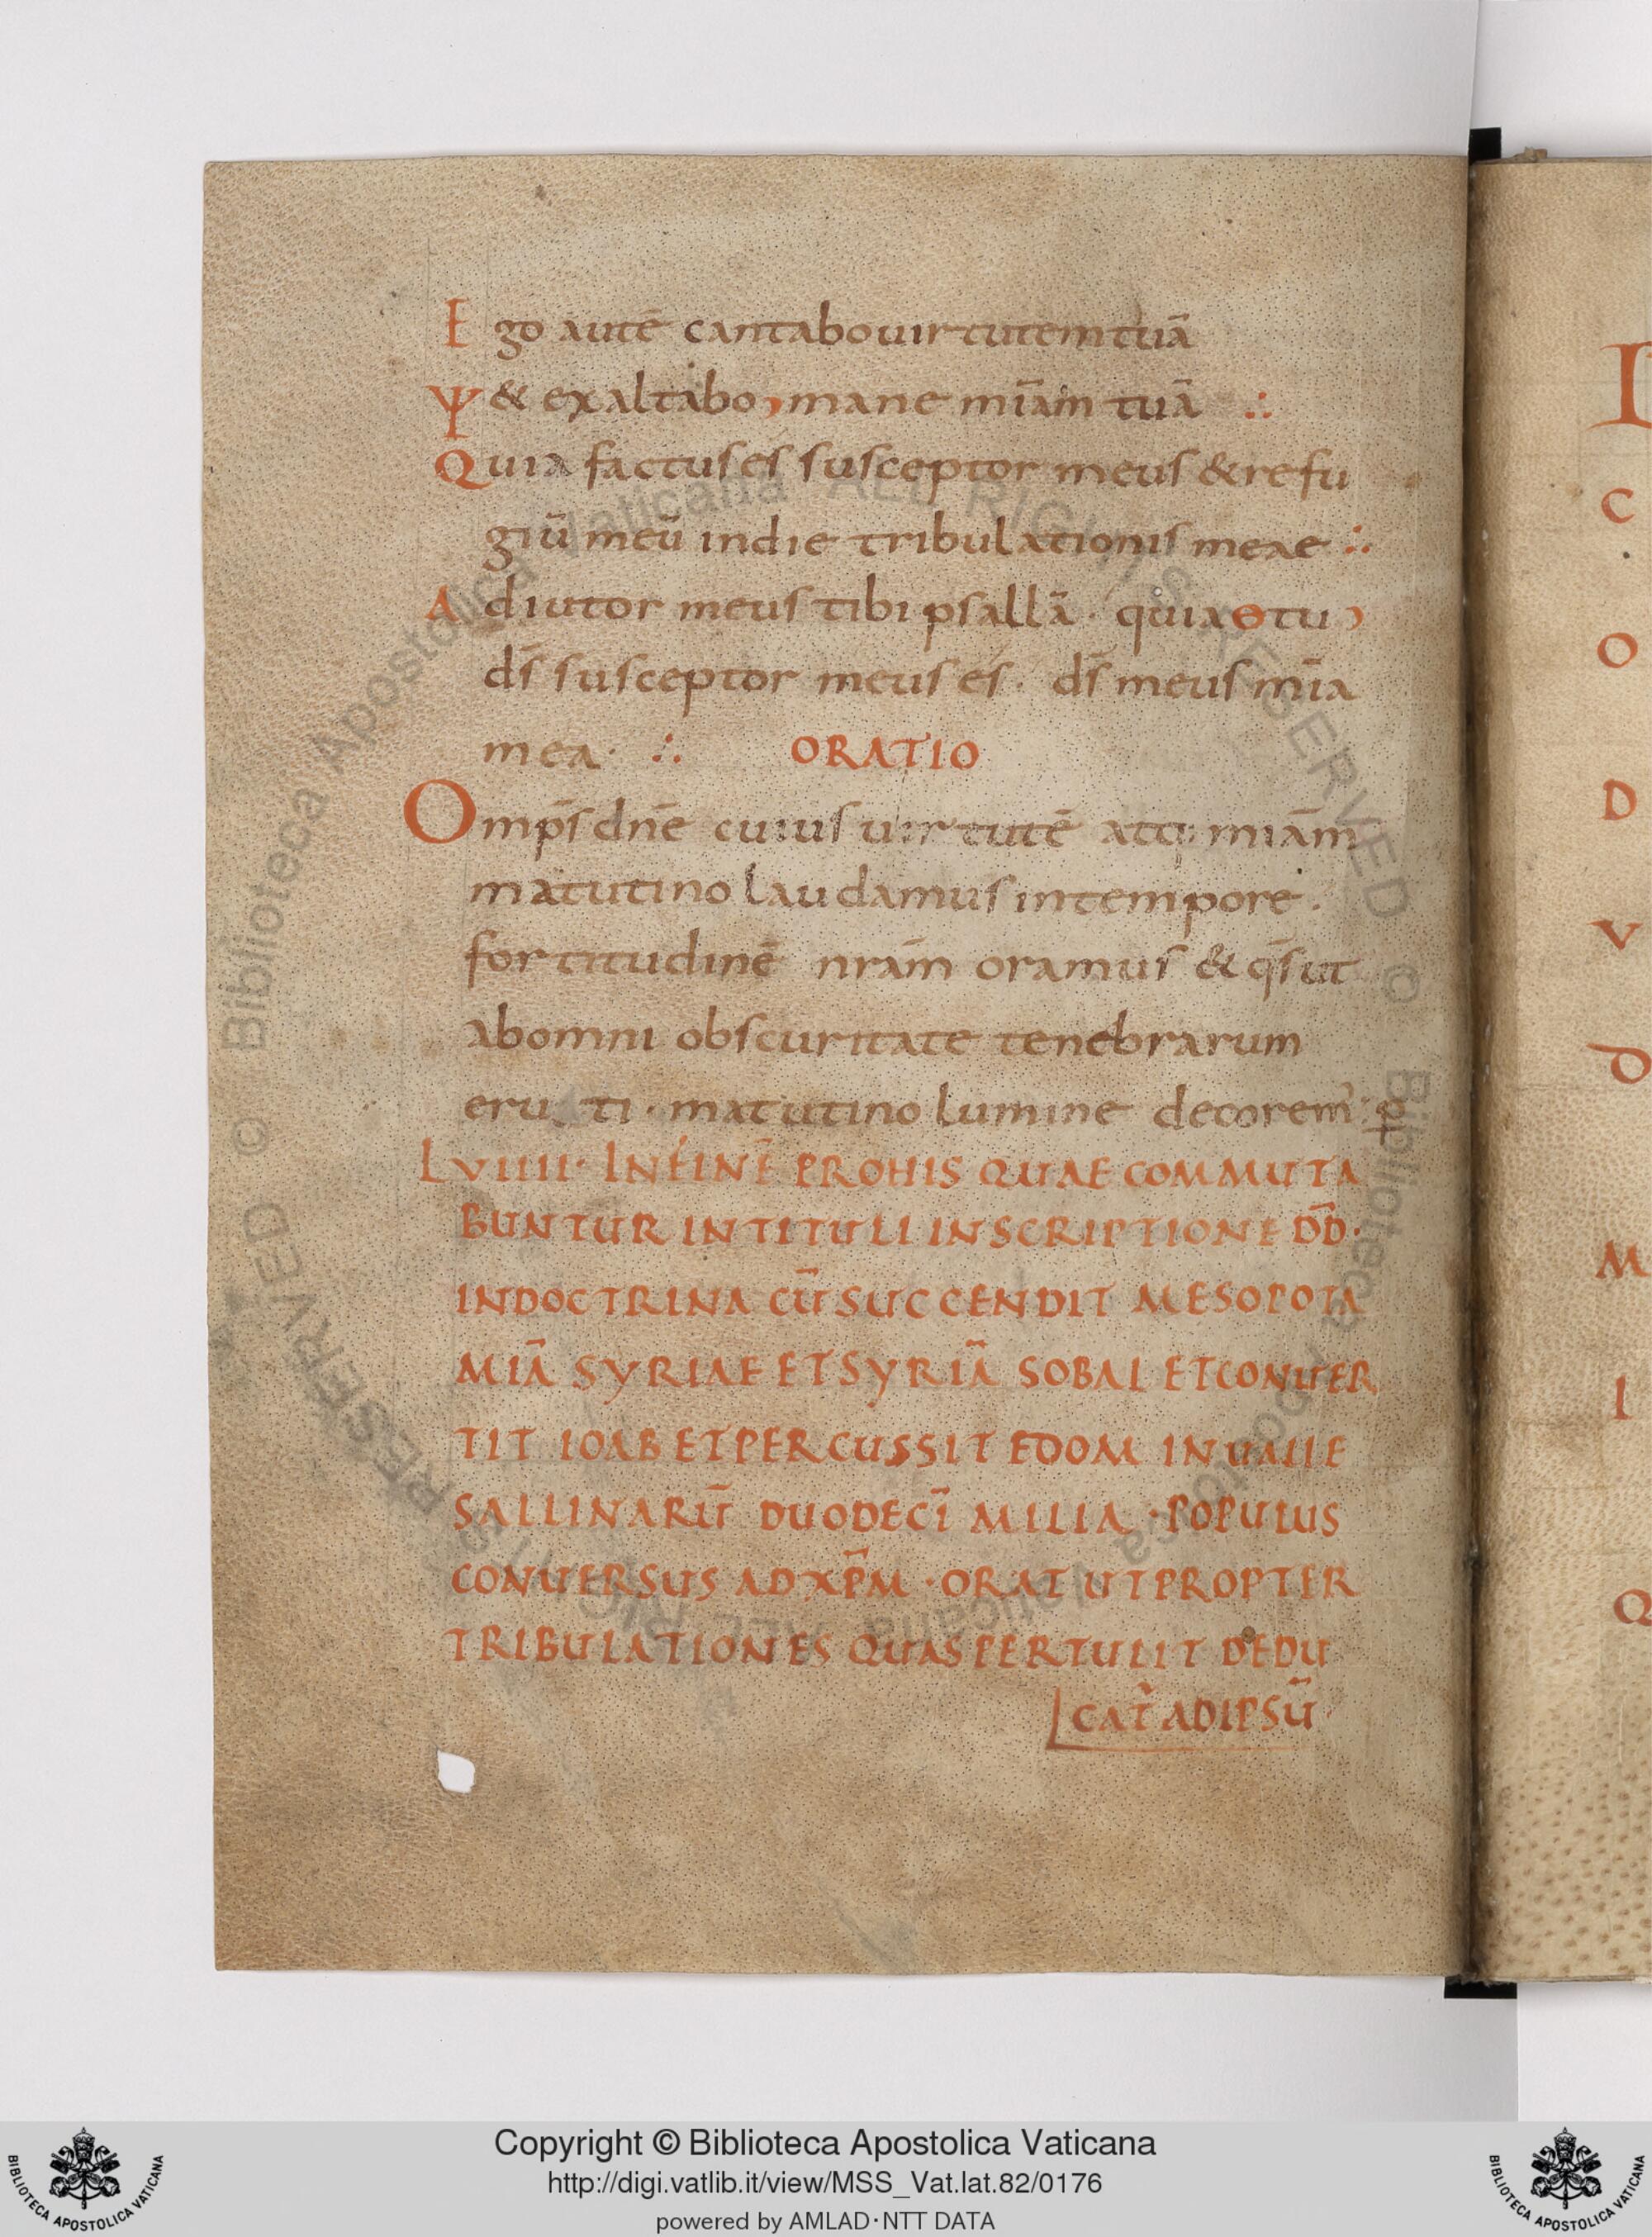 Ego autē cantabo uirtutem tuā
Ψ & exaltabo, mane mīam tuā ∴
Quia factus es susceptor meus & refu
giū meū in die tribulationis meae ∴
Adiutor meus tibi psallā · quia θ tu
ds̄ susceptor meus es · ds̄ meus mīa
mea · ∴ ORATIO
Omps̄ dnē cuius uirtutē atq; miām
matutino laudamus in tempore ·
fortitudinē nrām oramus & qs̄ ut
ab omni obscuritate tenebrarum
eru ti · matutino lumine decorem̉ · ꝑ
LVIIII · IN FINĒ PRO HIS QUAE COMMUTA
BUNTUR IN TITULI INSCRIPTIONE DD̄ ·
IN DOCTRINA CŪ SUCCENDIT MESOPOTA
MIĀ SYRIAE ET SYRIĀ SOBAL ET CONUER
TIT IOAB ET PERCUSSIT EDOM IN UALLE
SALLINARŪ DUODECĪ MILIA · POPULUS
CONUERSUS AD XP̄M · ORAT UT PROPTER
TRIBULATIONES QUAS PERTULIT DEDU
CAT̉ AD IPSŪ
I
C
O
D
V
D
M
I
Q
© Biblioteca Apostolica Vaticana ALL RIGHTS RESERVED
© Biblioteca Apostolica Vaticana ALL RIGHTS RESERVED
BIBLIOTECA APOSTOLICA VATICANA
Copyright © Biblioteca Apostolica Vaticana
http://digi.vatlib.it/view/MSS_Vat.lat.82/0176
powered by AMLAD·NTT DATA
BIBLIOTECA APOSTOLICA VATICANA